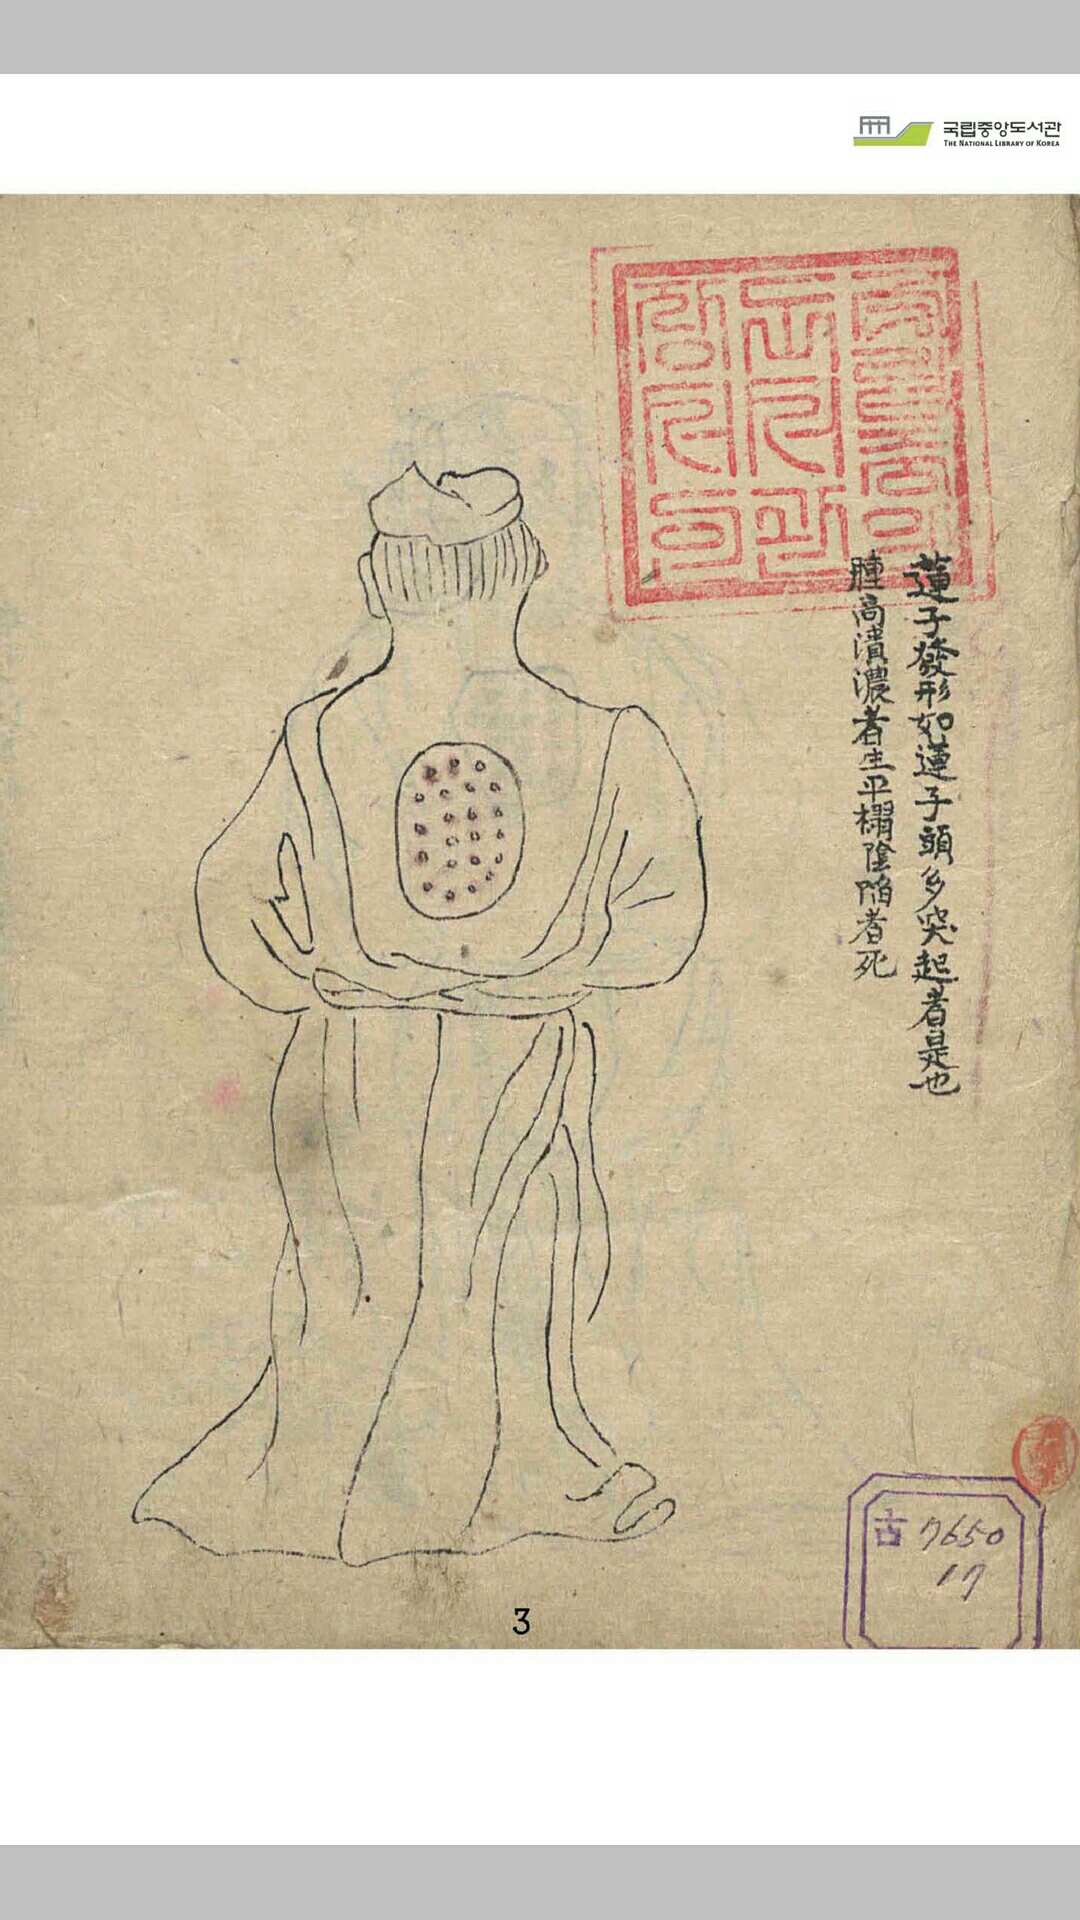 국립중앙도서관
THE NATIONAL LIBRARY OF KOREA
蓮子發形如蓮子頭多突起者是也
腫高潰濃者生平榻陰陷者死
古 7650
17
3